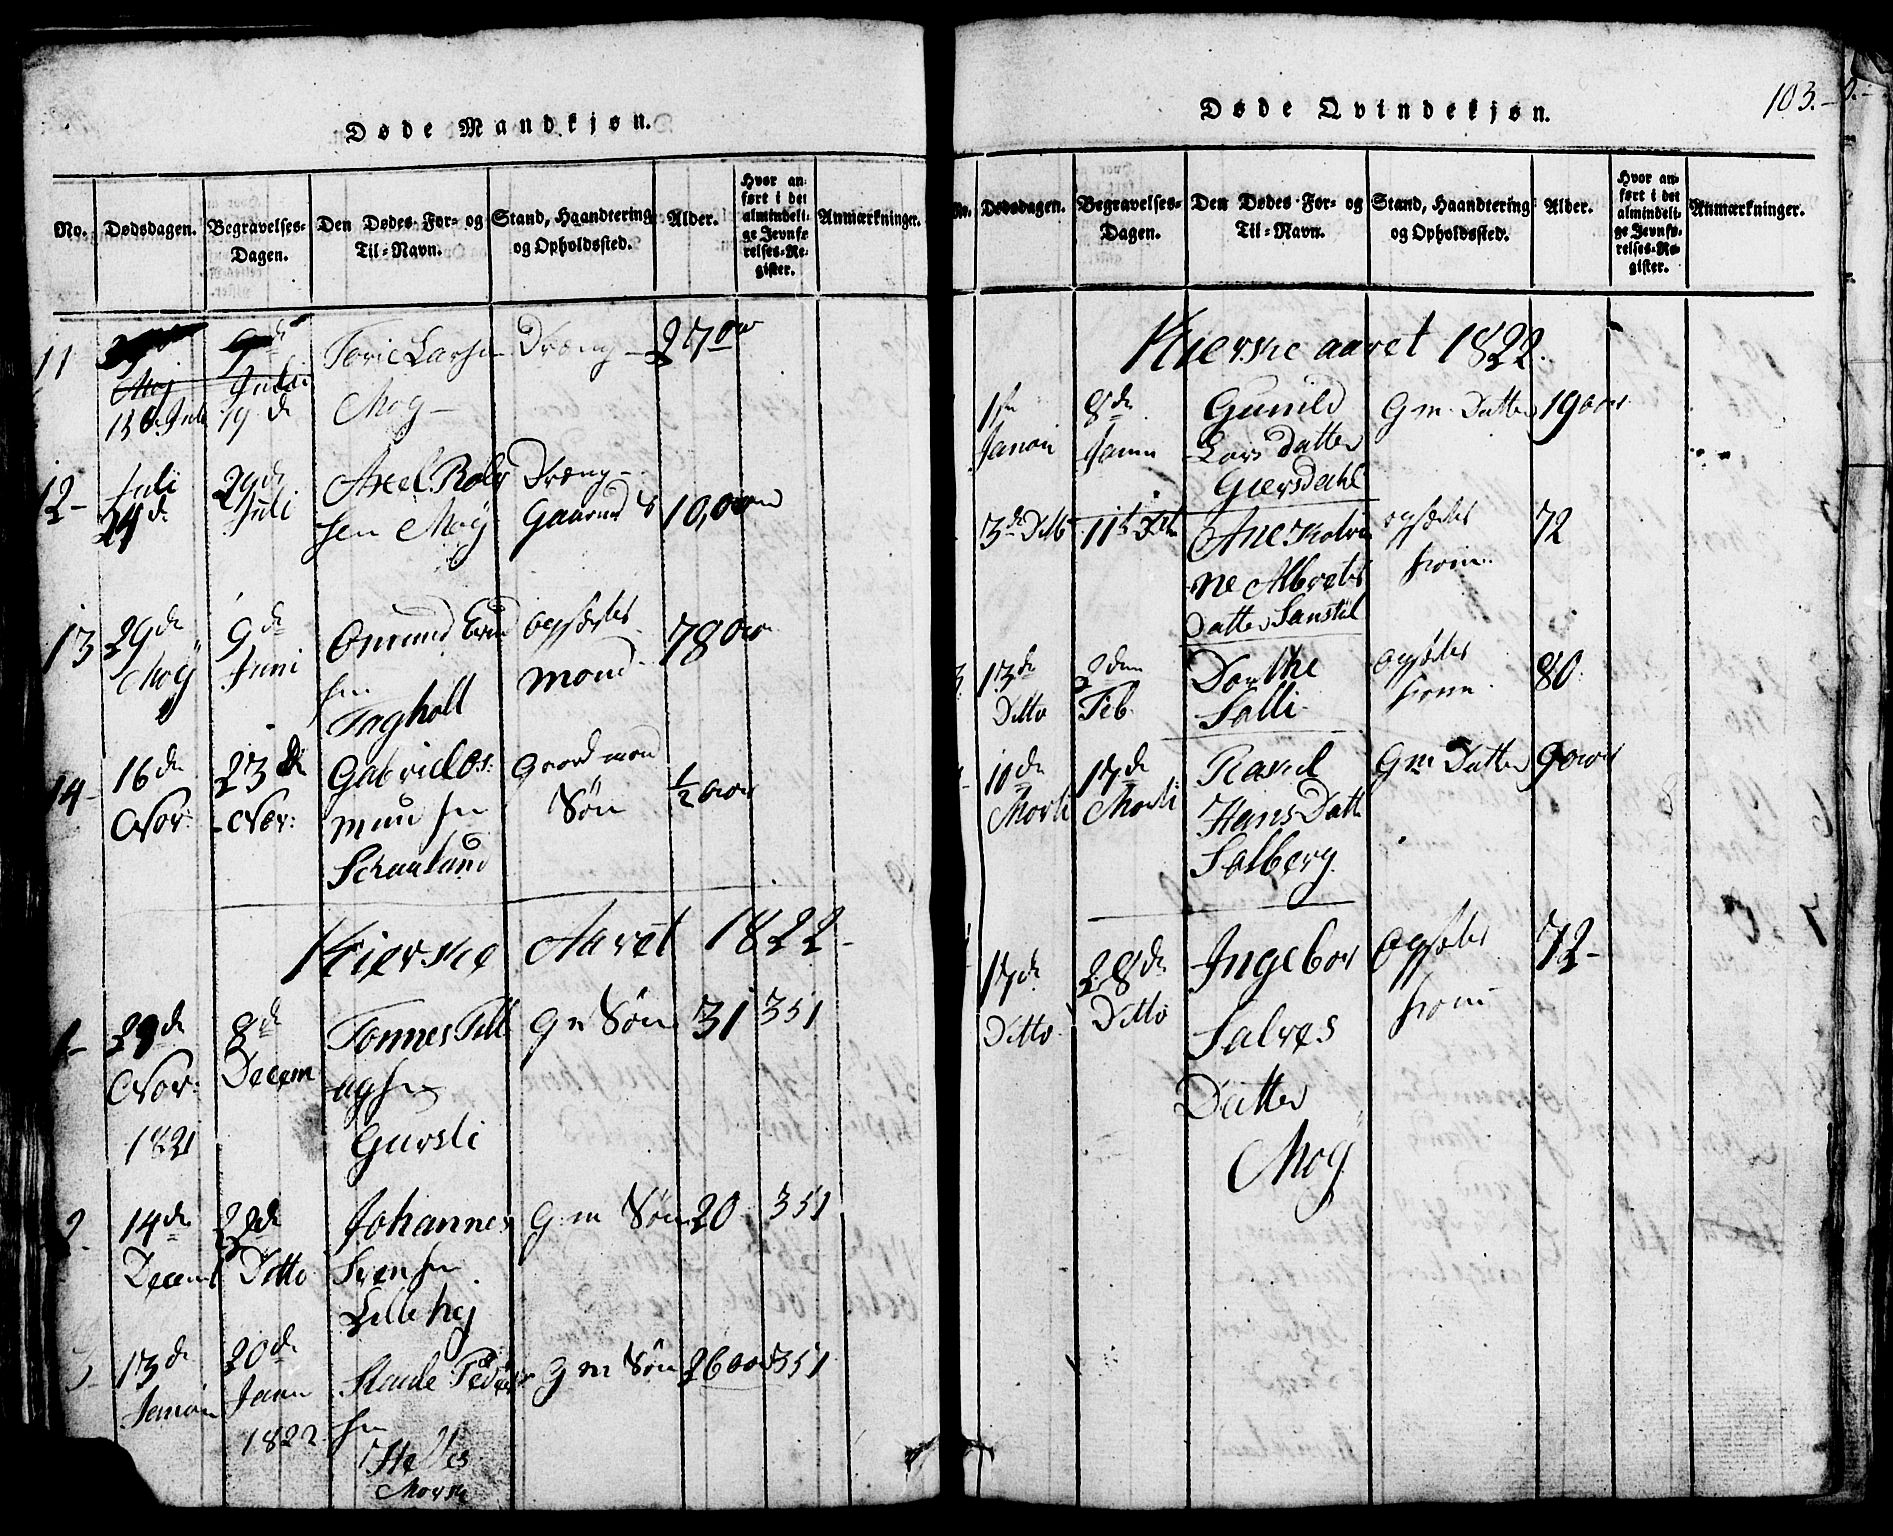 Døde Mandkjøn.
No. Dødsdagen. Begravelses-Dagen. Den Dødes For- og Til-Navn. Stand, Haandtering og Opholdssted. Alder. Hvor anført i det almindelige Jevnførelses-Register. Anmærkninger.
11
Maj Juli
13 d. Juli 19 de
Torie Larsen Dræng 27 aar
Moy
12 Juli 24 de 29 de Juli
Axel Rolv
sen Moÿ
Dræng
Gaarud
10, aar
13 29 de Moÿ 9 de Juni
Omund
sen
Tagholt
opsæder
mand
78 aar
14 16 de Nov: 23 de Nov:
Gabriel Os:
mun sen
Schaaland
Gaard mand
Søn
1/2 aar
Kierke Aaret 1822
1 29 de Nov: 1821 8 de Decem
Tønnes Tell
agsen
Gursli
G m Søn 31 351
2. 14 de Decem 22 de Ditto
Johannes
Svensen
Lillehej
G: m Søn 20 351
3 13 de Januari 20 de Janu 1822
Peders
sen
Helles
Morsk
G m Søn 26 aar 351
103.
Døde Qvindekjøn.
No. Dødsdagen. Begravelses-Dagen. Den Dødes For- og Til-Navn. Stand, Haandtering og Opholdssted. Alder. Hvor anført i det almindelige Jevnførelses-Register. Anmærkninger.
Kierke aaret 1822.
1ste Januari 8 de Janu
Gunild
Lars Datter
Giersdahl
G m. Datter 19 aar
3 de Ditto 11te Ditto
Ane Katri
ne Albrets
Datter Sanstøl
opsæder
kone
72
3. 13 de Ditto 2den Feb.
Dorthe
Salli
opsæder
kone
80
10 de Marti 17 de Marti
Ravel
Hans Datt
Solberg
G m Datter 9 aar
17 de Ditto 28 de Ditto
Ingebor
Salves
Datter
Moÿ
Opsæder
kone
72